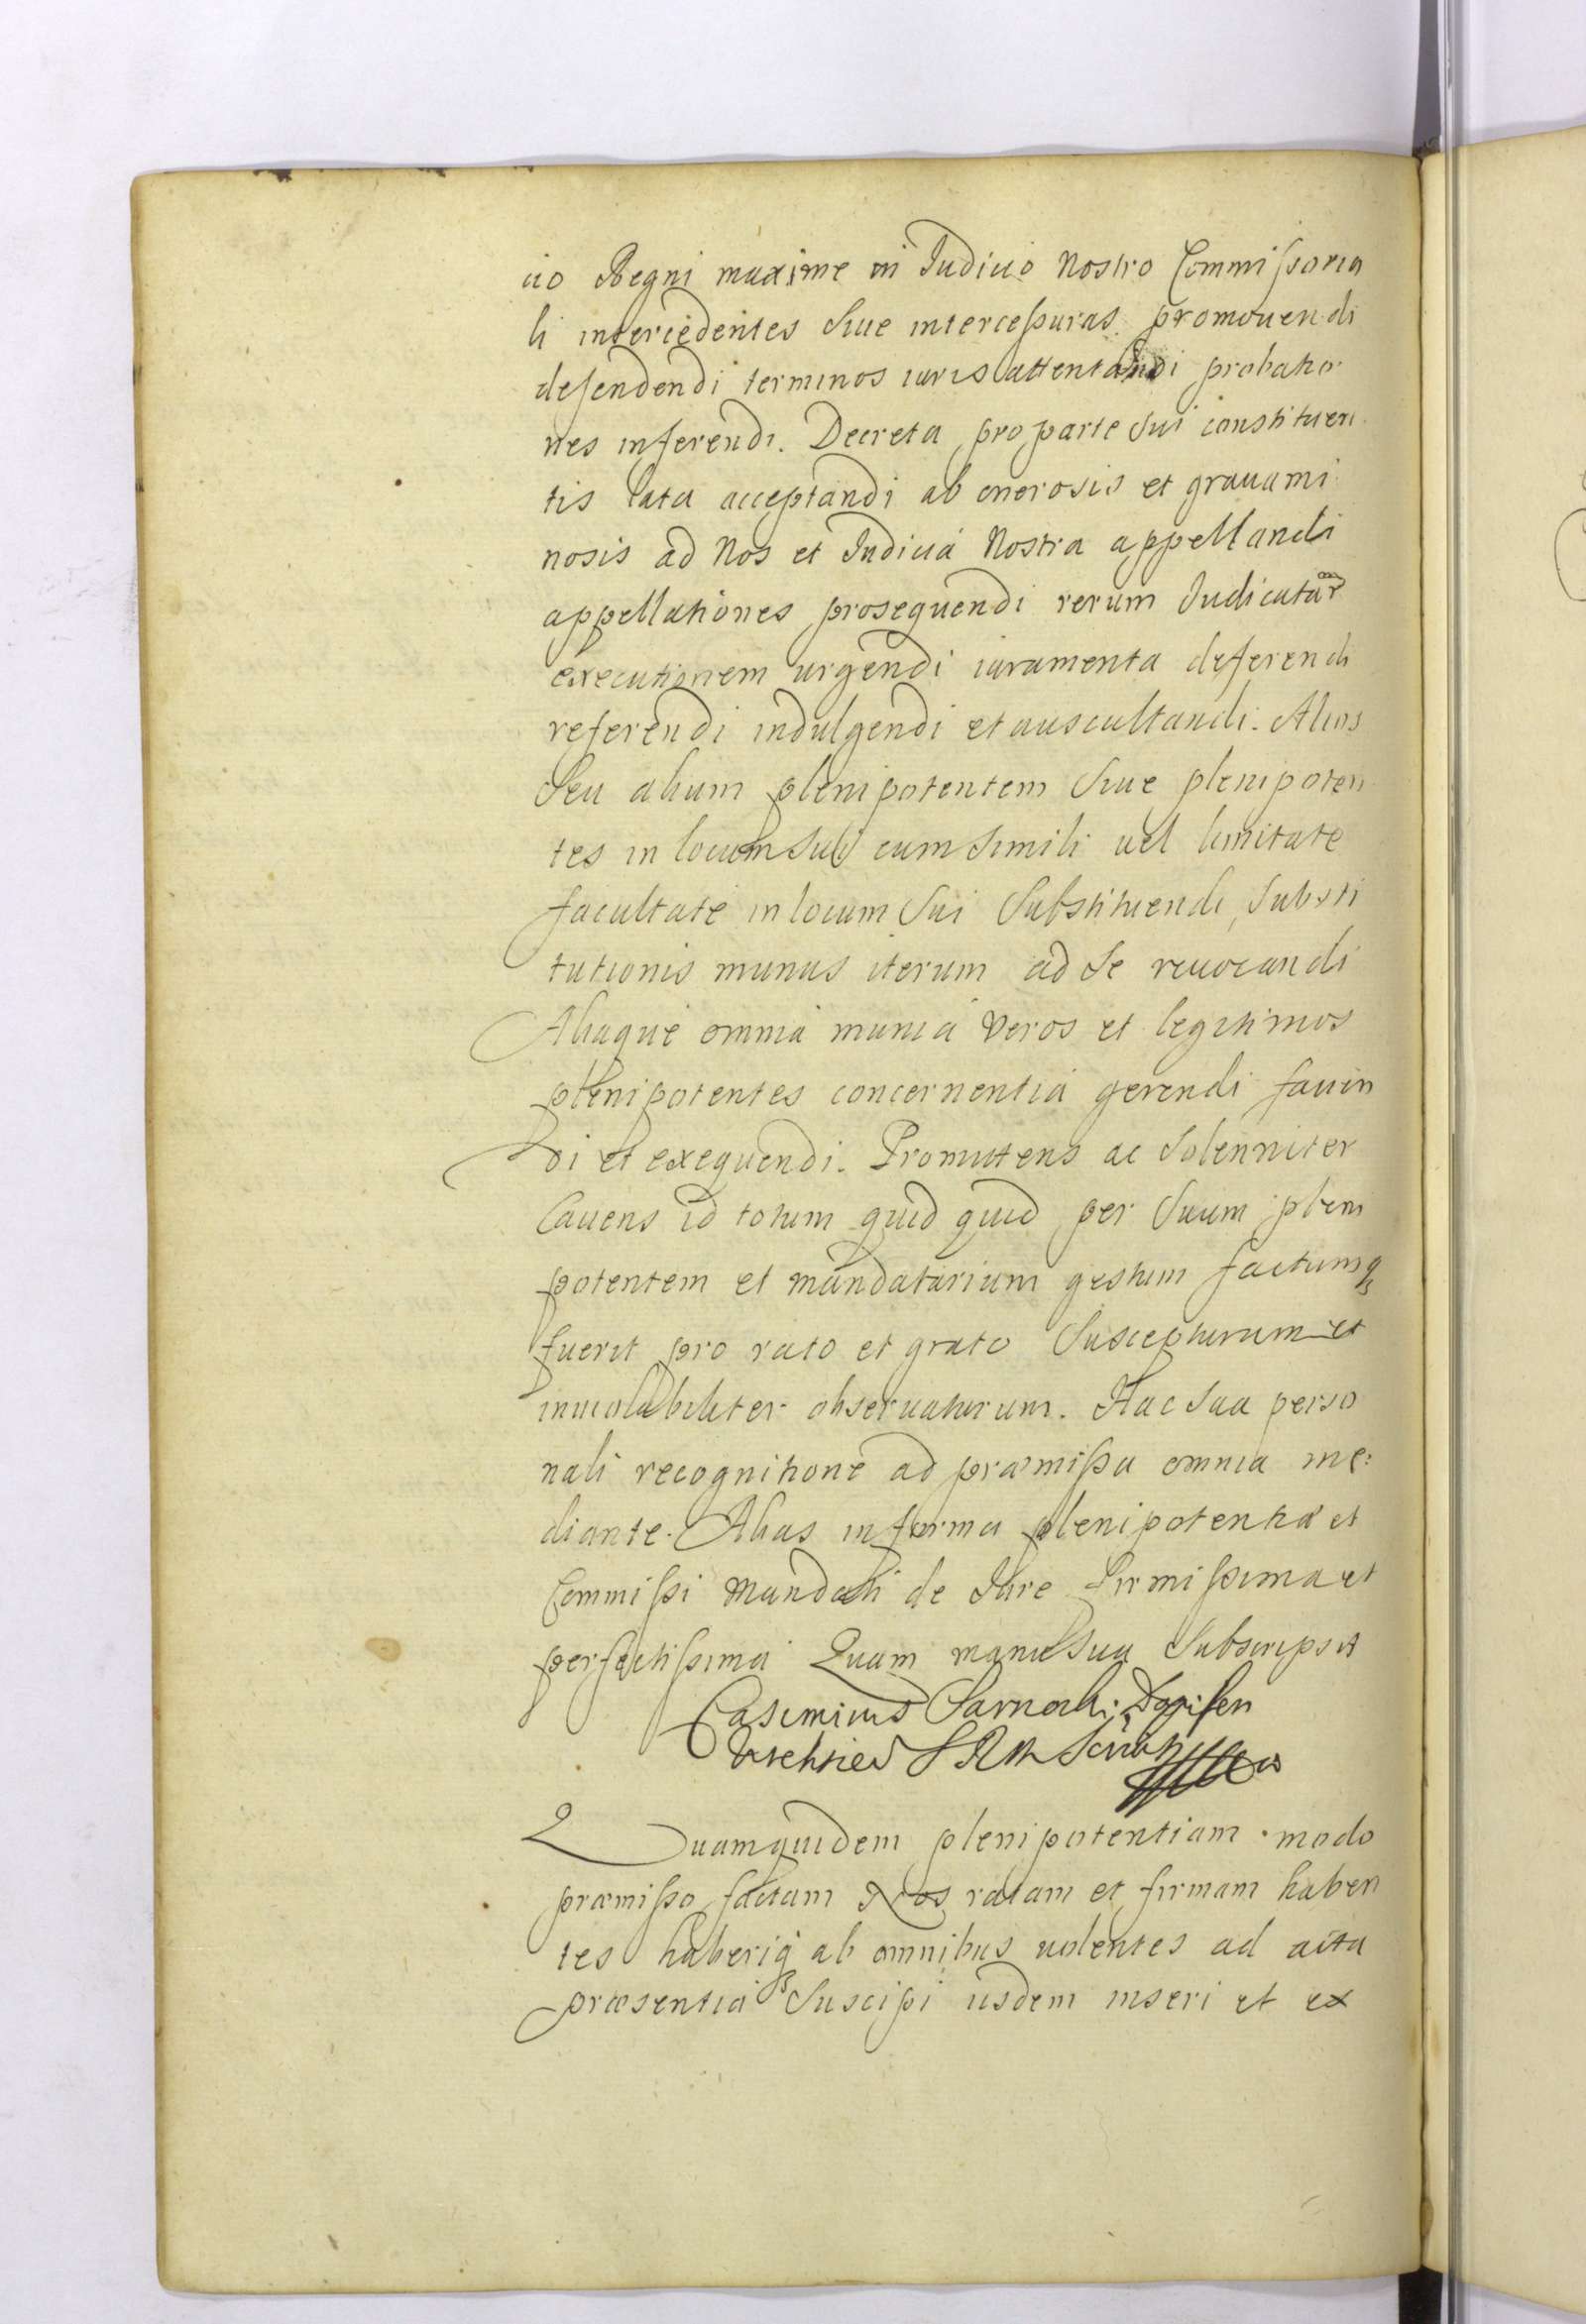 cio Regni maxime in Judicio Nostro Commissoria
li intercedentes Siue intercessuras promouendi
defendendi terminos iuris attentandi probatio
nes inferendi. Decreta pro parte Sui constituen
tis lata acceptandi ab onerosis et grauami
nosis ad Nos et Judicia Nostra appellandi
appellationes prosequendi rerum Judicatar
executionem urgendi iuramenta deferendi
referendi indulgendi et auscultandi. Alios
Seu alium plenipotentem Siue plenipoten
tes in locum Sui cum Simili uel limitate
facultate in locum Sui Substituendi, Substi
tutionis munus iterum ad Se reuocandi
Aliaque omnia munia Veros et legitimos
plenipotentes concernentia gerendi facien
di et exequendi. Promittens ac Solenniter
Cauens id totum quid quid per Suum pleni
potentem et mandatarium gestum factumq
fuerit pro rato et grato Suscepturum et
inuiolabiliter obseruaturum. Hac Sua perso
nali recognitione ad præmissa omnia me:
diante. Alias in forma plenipotentiæ et
Commissi Mandati de Jure Firmissima et
perfectissima Quam manu Sua Subscripsit
Casimirus Sarnocki
S R M
Quamquidem plenipotentiam modo
præmisso factam Nos ratam et firmam haben
tes haberiq ab omnibus uolentes ad acta
præsentia Suscipi iisdem inseri et ex